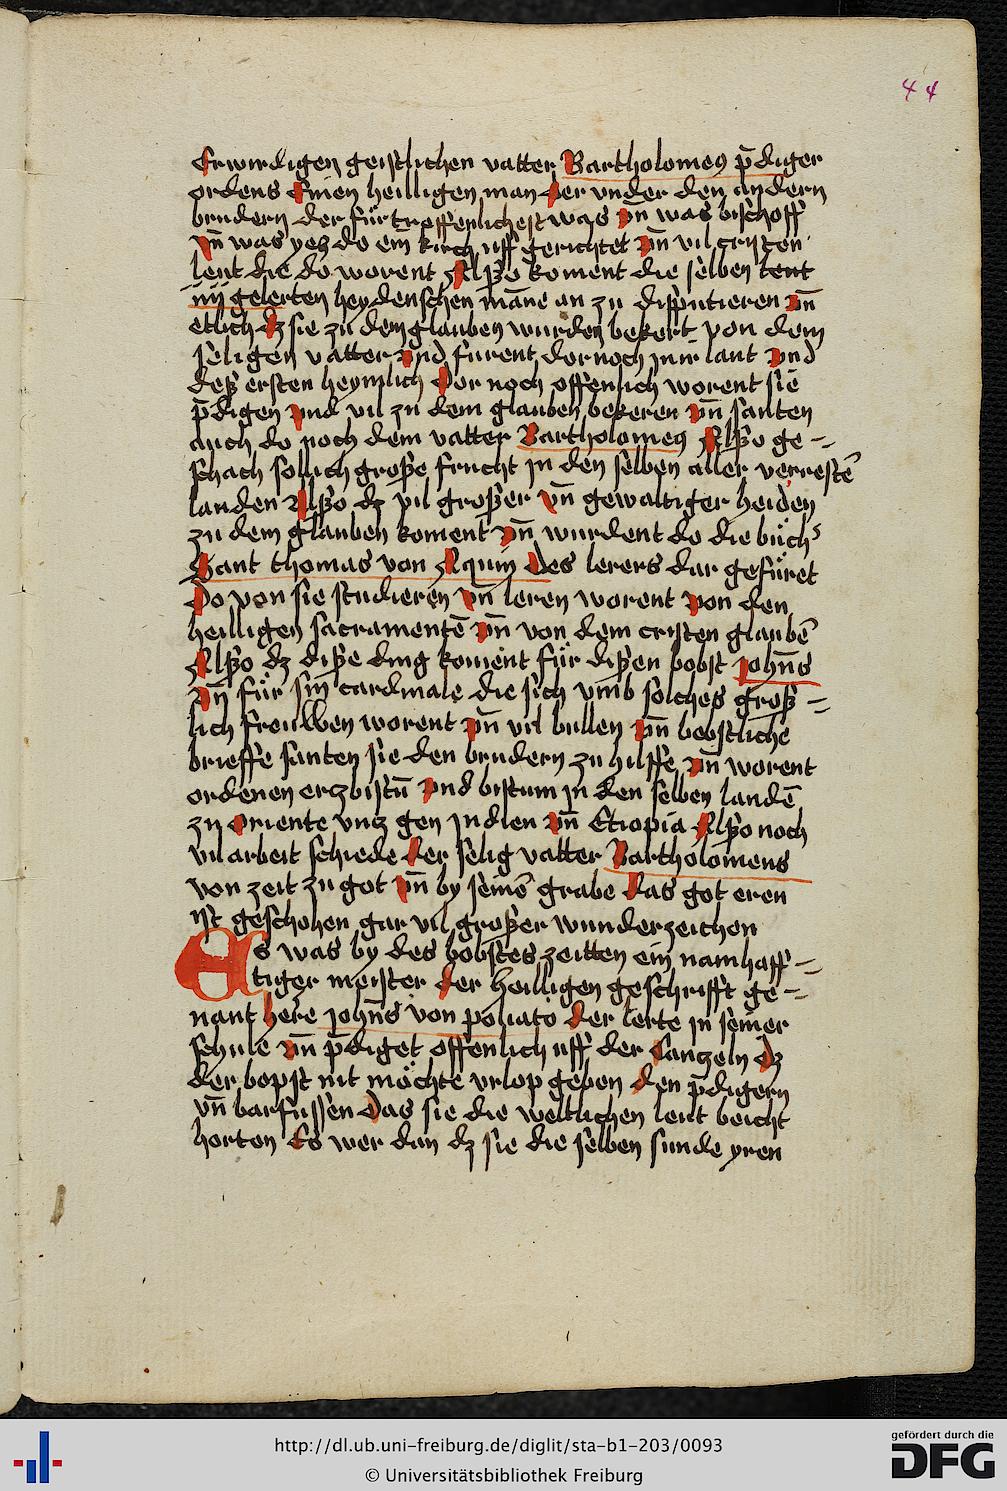 44
Erwirdigen geistlichen vatter Bartholomeꝯ p̄diger
ordens Einen heilligen man der vnder den andern
brudern der fürtroffenlichest was vn̄ was bischoff
vn̄ was yetz do ein kirch uff gerichtet vn̄ vil cristen
leut die do worent Also koment die selben leut
iiij gelerten heydenschen māne an zu disputieren vn̄
etlich dz sie zu dem glauben wurden bekert von dem
seligen vatter vnd furent dornoch in ir lant vnd
deß ersten heymlich Dor noch offenlich worent sie
p̄digen vnd vil zu dem glauben bekeren vn̄ santen
auch do noch dem vatter Bartholomeꝯ Also ge=
schach sollich große frucht in den selben aller verrestē
landen Also dz vil großer vn̄ gewaltiger heiden
zu dem glauben koment vn̄ wurdent do die büchs
Sant thomas von Aquin des lerers dar gefüret
Do von sie studieren vn̄ leren worent von den
heilligen sacramentē vn̄ von dem cristen glaubē
Also dz diße ding koment für dißen bobst john̄s
vn̄ für sin cardinale die sich vmb solches groß=
lich freuwen worent vn̄ vil bullen vn̄ bebstliche
brieffe santen sie den brudern zu hilffe vn̄ worent
ordenen erczbistū vnd bistum in den selben landē
zu oriente vncz gen Indien vn̄ Etiopia Also noch
vil arbeit schiede der selig vatter Bartholomeus
von zeit zu got vn̄ by seinē grabe das got eren
ist geschohen gar vil großer wunderzeichen
Es was by des bobstes zeitten ein namhaff=
tiger meister der heilligen geschrifft ge=
nant here john̄s von poliato der lerte in seiner
schule vn̄ p̄diget offenlich uff der Canczeln dz
der bopst nit möchte vrlop geben den p̄digern
vn̄ barfussen Das sie die weltlichen leut beicht
horten Es wer dan dz sie die selben sunde yren
http://dl.ub.uni-freiburg.de/diglit/sta-b1-203/0093
© Universitätsbibliothek Freiburg
gefördert durch die
DFG